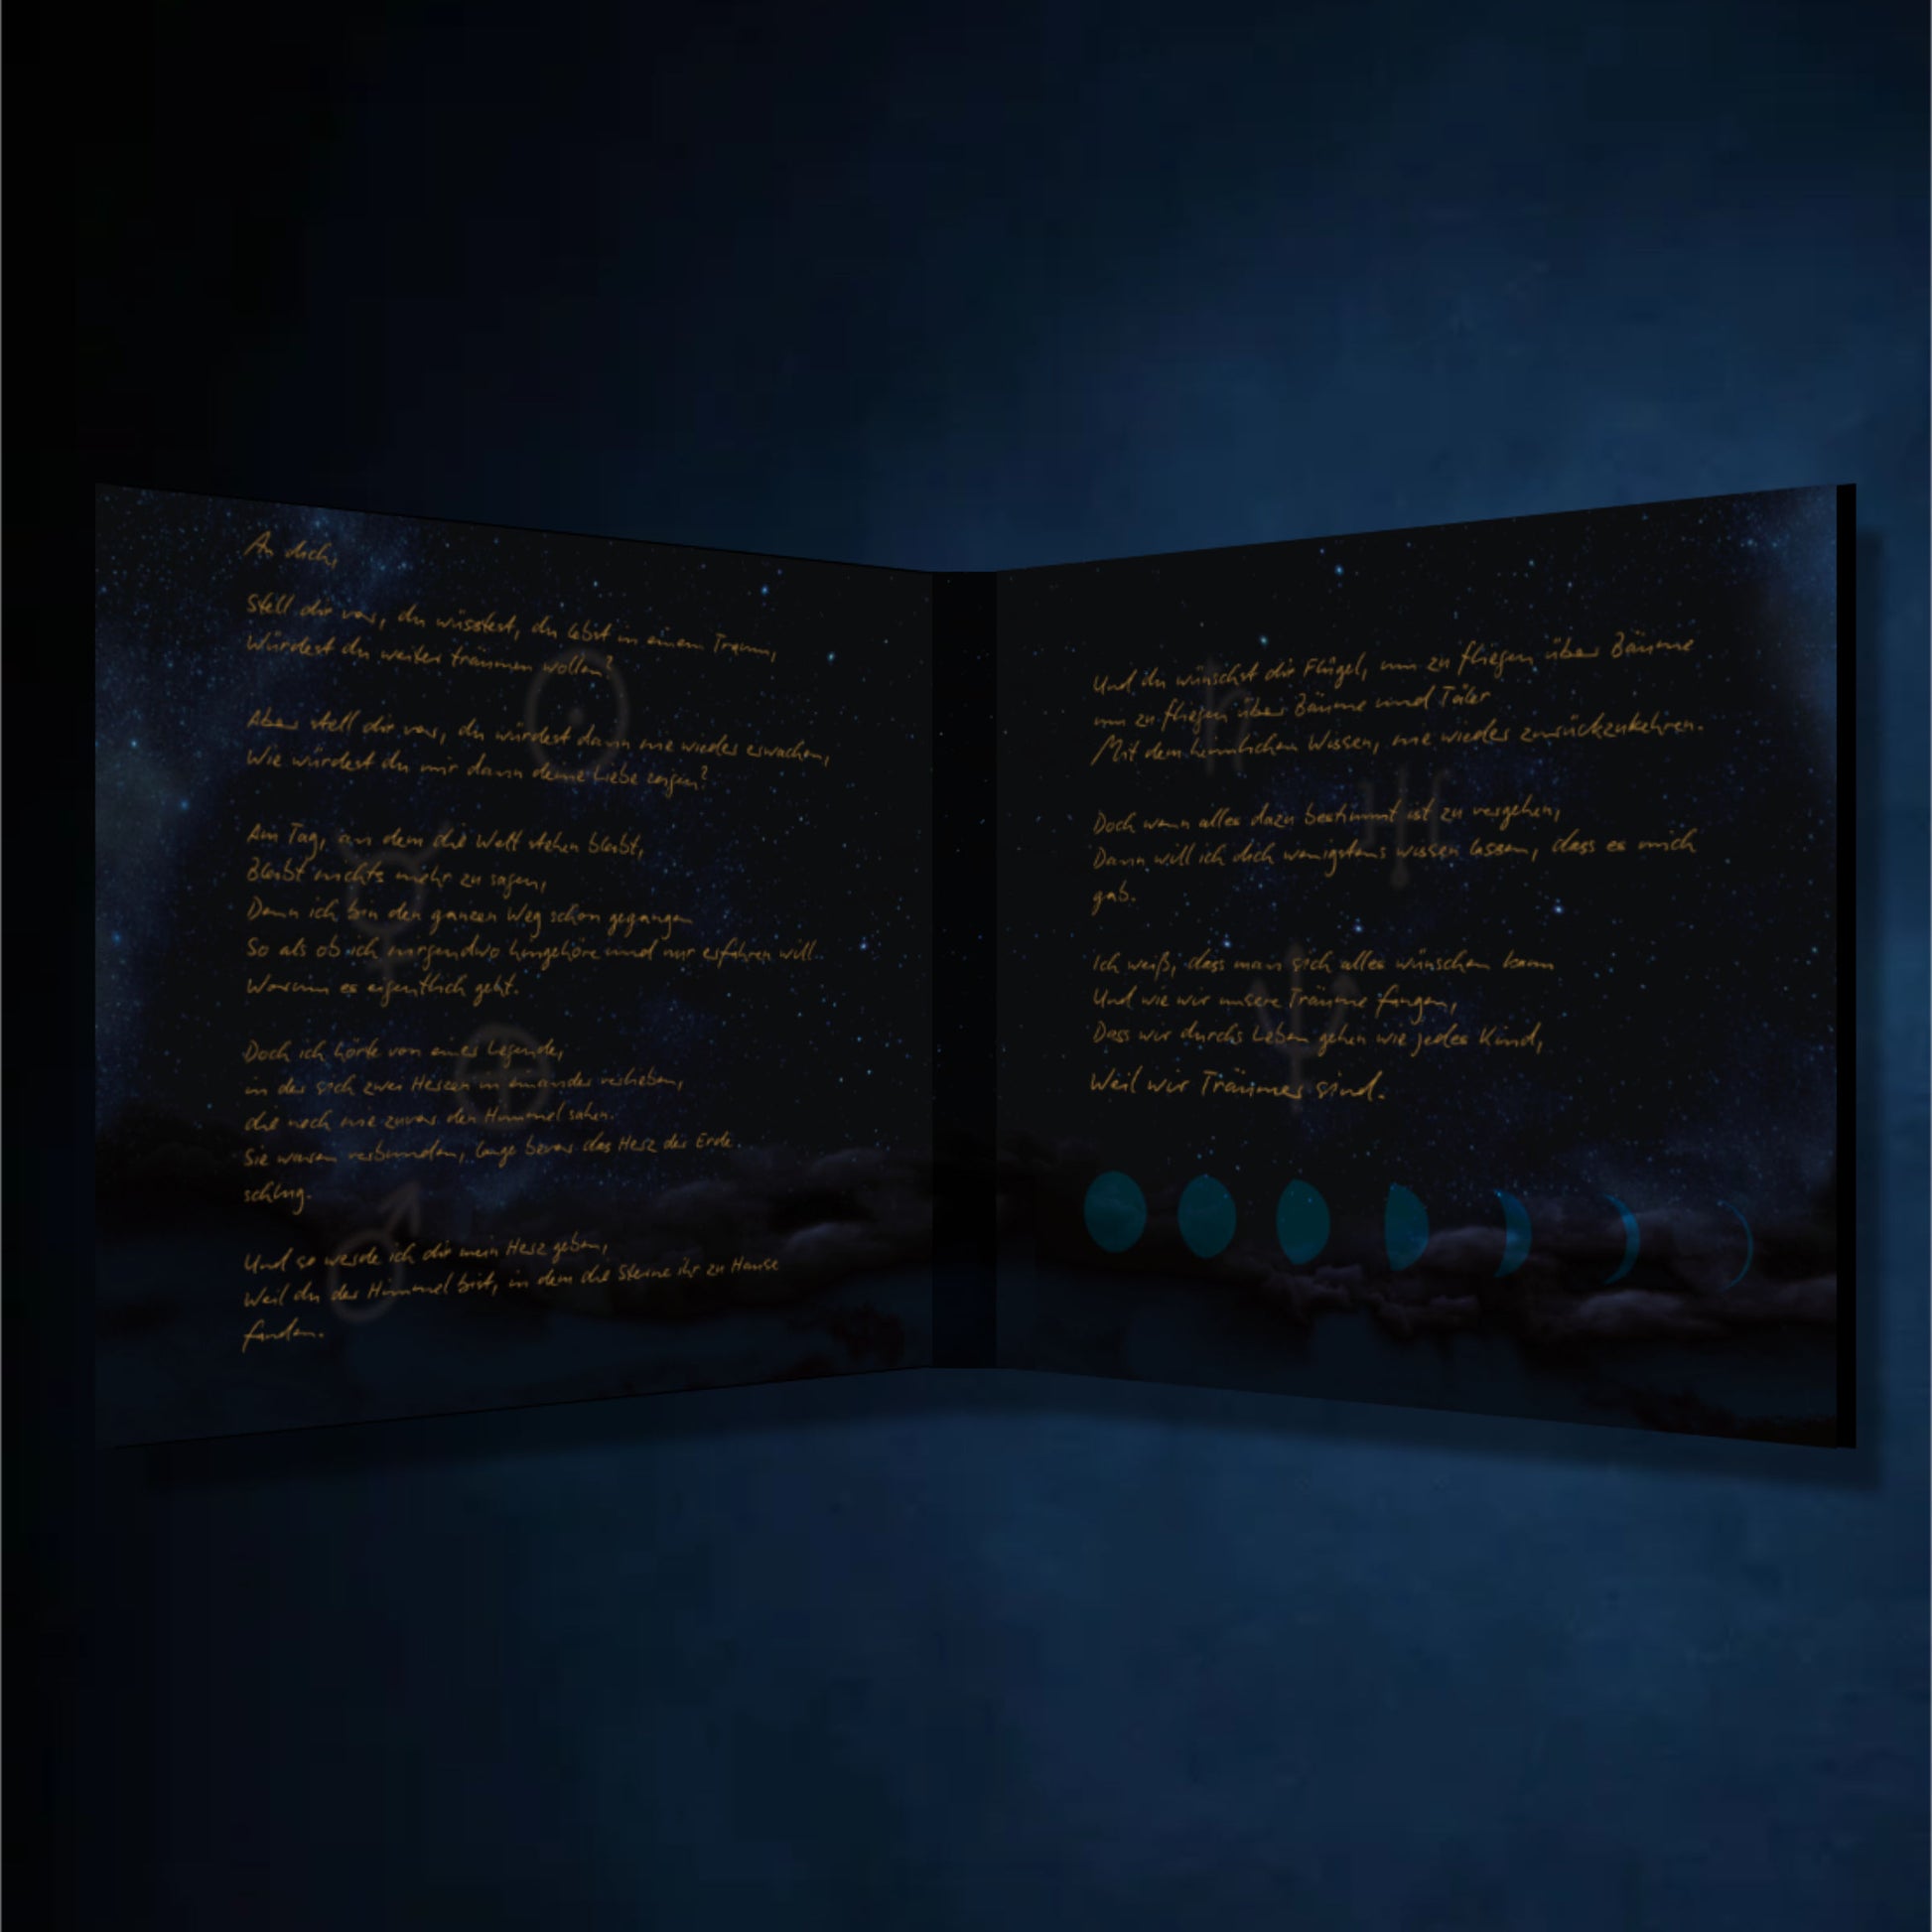 An dich,
Stell dir vor, du wüsstest, du lebst in einem Traum,
Würdest du weiter träumen wollen?
Aber stell dir vor, du würdest dann nie wieder erwachen,
Wie würdest du mir dann deine Liebe zeigen?
Am Tag, an dem die Welt stehen bleibt,
Bleibt nichts mehr zu sagen,
Denn ich bin den ganzen Weg schon gegangen
So als ob ich nirgendwo hingehöre und nur erfahren will
Warum es eigentlich geht.
Doch ich hörte von einer Legende,
in der sich zwei Herzen in einander verlieben,
die noch nie zuvor den Himmel sahen.
Sie waren verbunden, lange bevor das Herz der Erde
schlug.
Und so werde ich dir mein Herz geben,
Weil du der Himmel bist, in dem die Sterne ihr zu Hause
fanden.
Und du wünschst dir Flügel, um zu fliegen über Bäume
um zu fliegen über Bäume und Täler
Mit dem heimlichen Wissen, nie wieder zurückzukehren.
Doch wenn alles dazu bestimmt ist zu vergehen,
Dann will ich dich wenigstens wissen lassen, dass es mich
gab.
Ich weiß, dass man sich alles wünschen kann
Und wie wir unsere Träume fangen,
Dass wir durchs Leben gehen wie jedes Kind,
Weil wir Träumer sind.